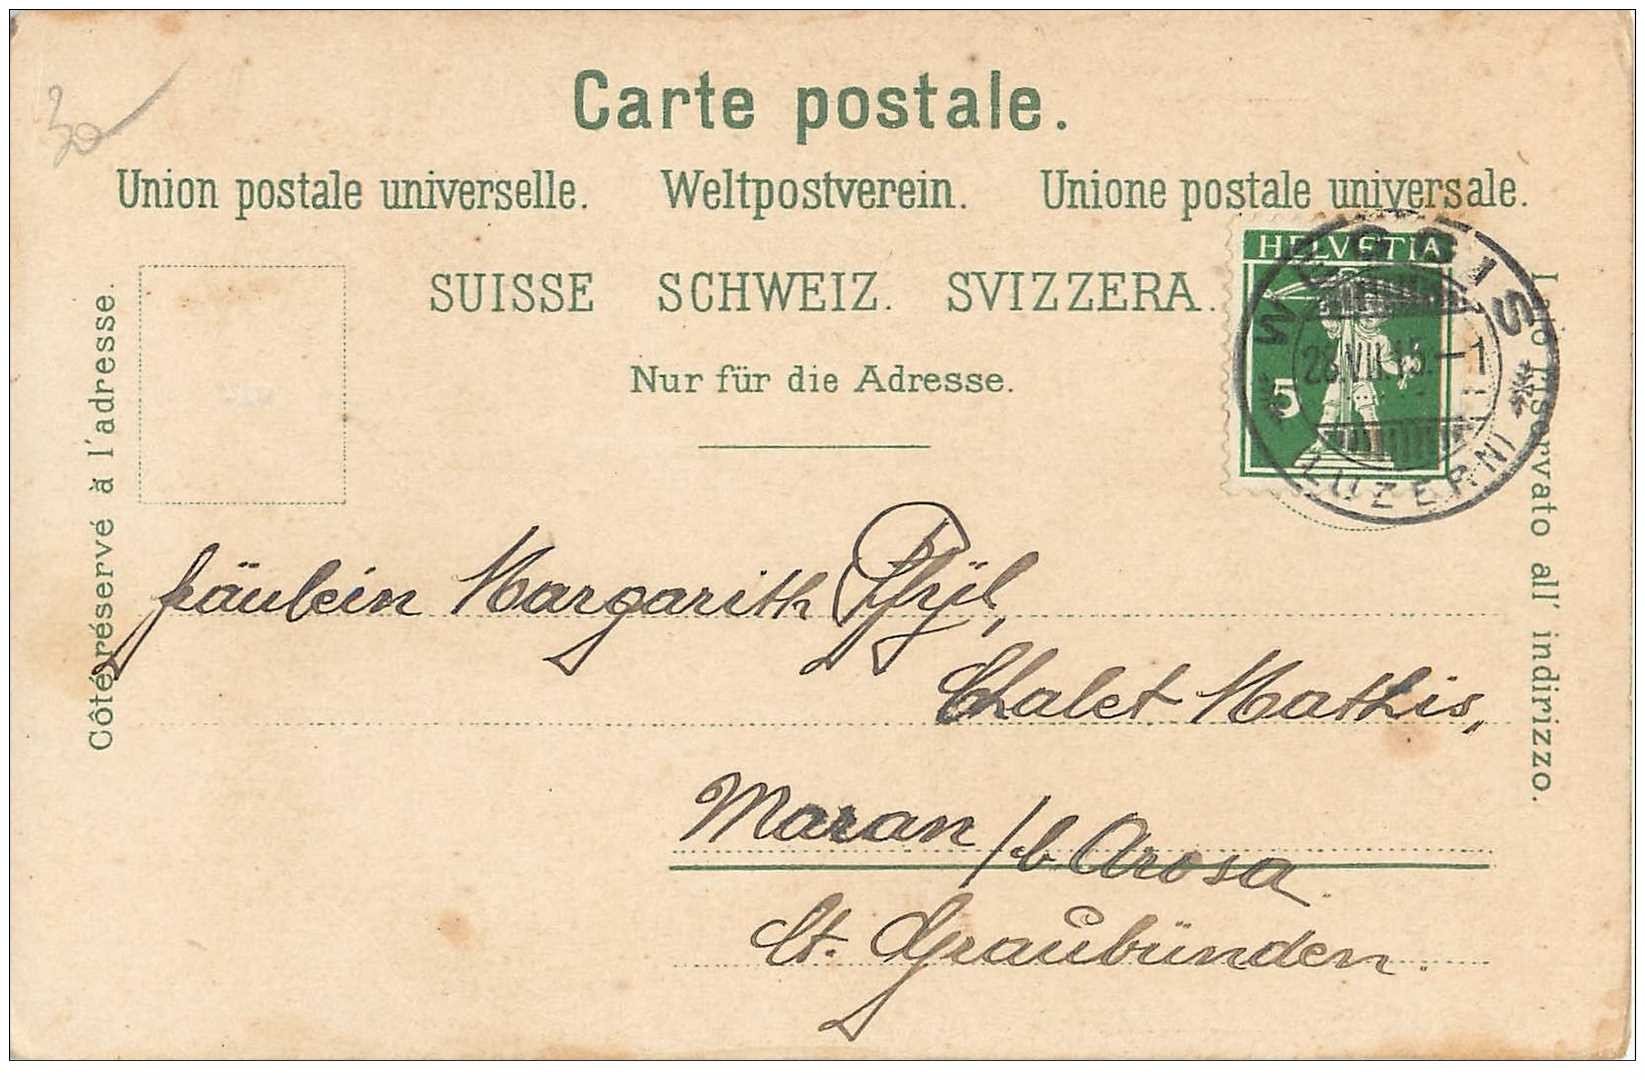 30
Carte postale.
Union postale universelle. Weltpostverein. Unione postale universale.
SUISSE SCHWEIZ. SVIZZERA.
Nur für die Adresse.
Côté réservé à l'adresse.
HELVETIA
5
WEGGIS
28.VII.15.–1
(LUZERN)
Lato riservato all' indirizzo.
Fräulein Margarith
Chalet Mathis,
Maran / b Arosa.
Ct. Graubünden.